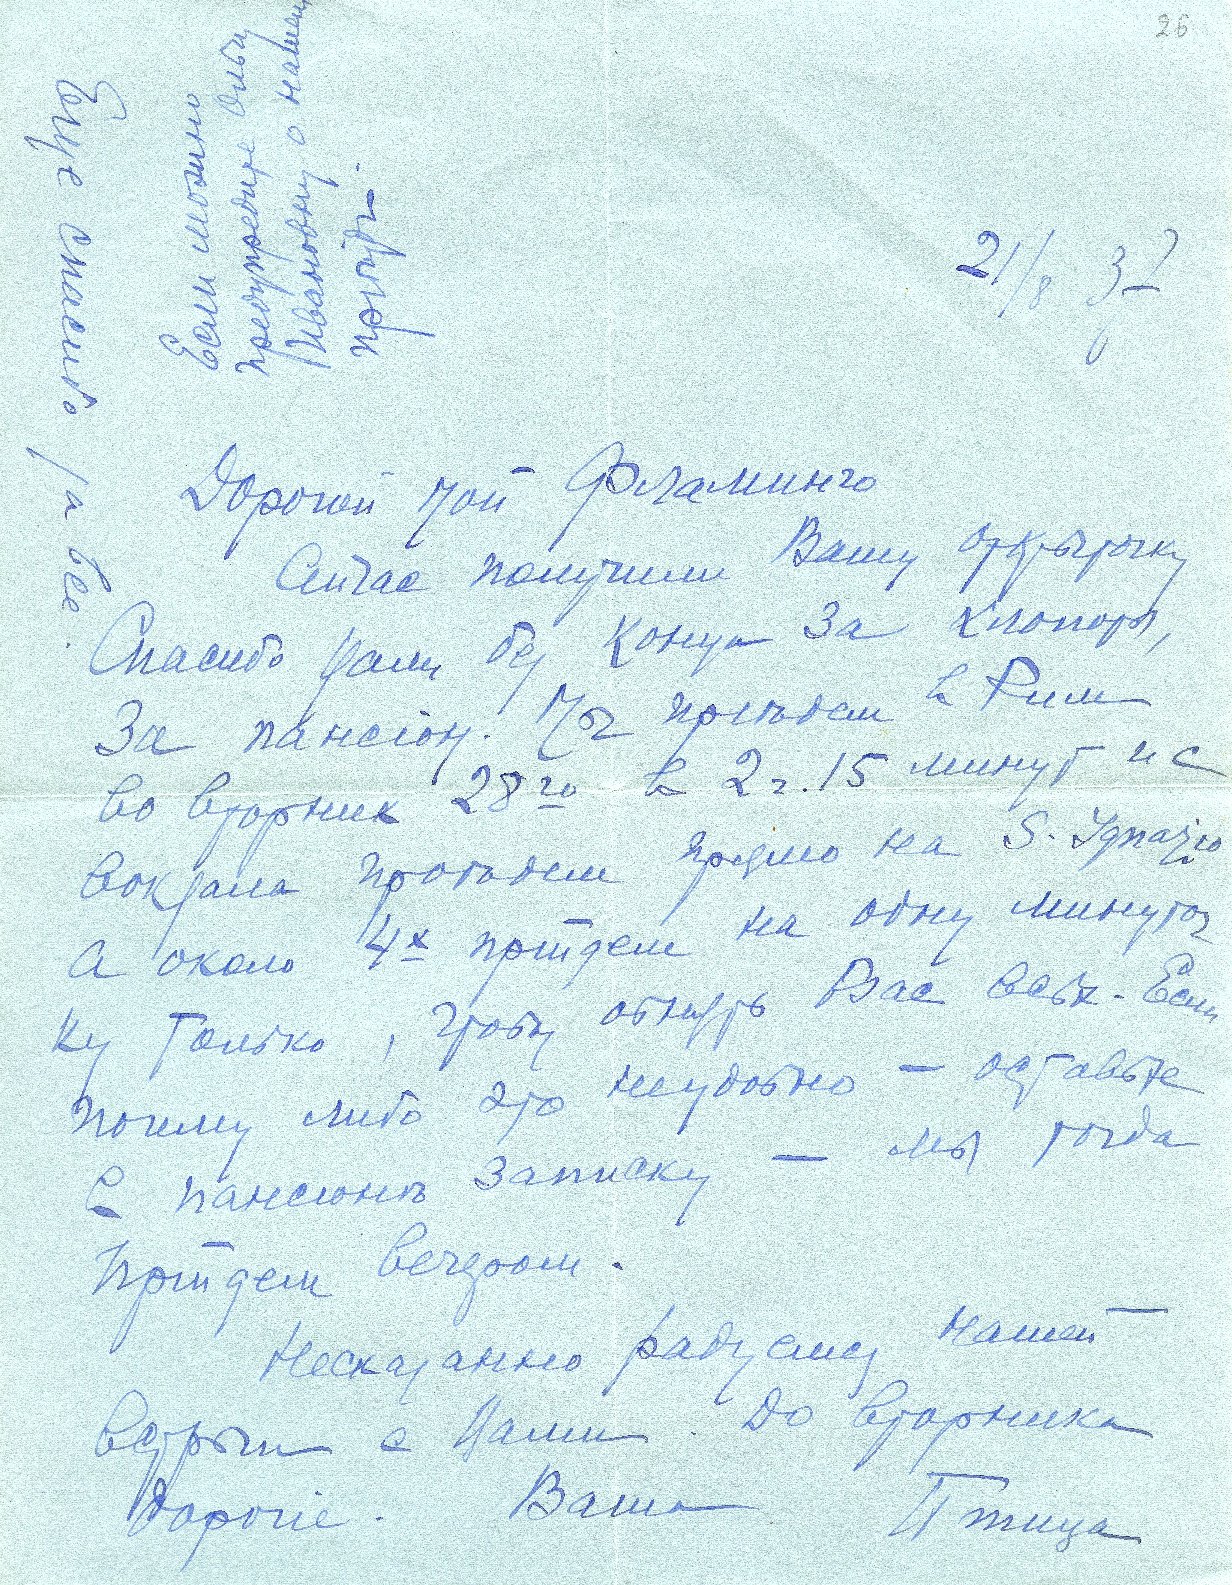 26
21/8 37
Дорогой мой Фламинго
Сейчас получили Вашу открыточку
Спасибо Вам без конца за хлопоты,
За пансіон. Мы пріѣдем в Рим
во вторник 28го в 2 ч. 15 минут и с
вокзала проѣдем прямо на S. Ignazio
а около 4х прійдем на одну минуточ
ку только, чтобы обнять Вас всѣх. Если
почему либо это неудобно — оставьте
в пансіонѣ записку — мы тогда
прійдем вечером.
Несказанно радуемся нашей
встрѣчи с Вами. До вторника
дорогіе. Ваша Птица
Если можно
предупредите Ольгу
Ивановну о нашем
пріѣздѣ.
Еще спасибо за все.